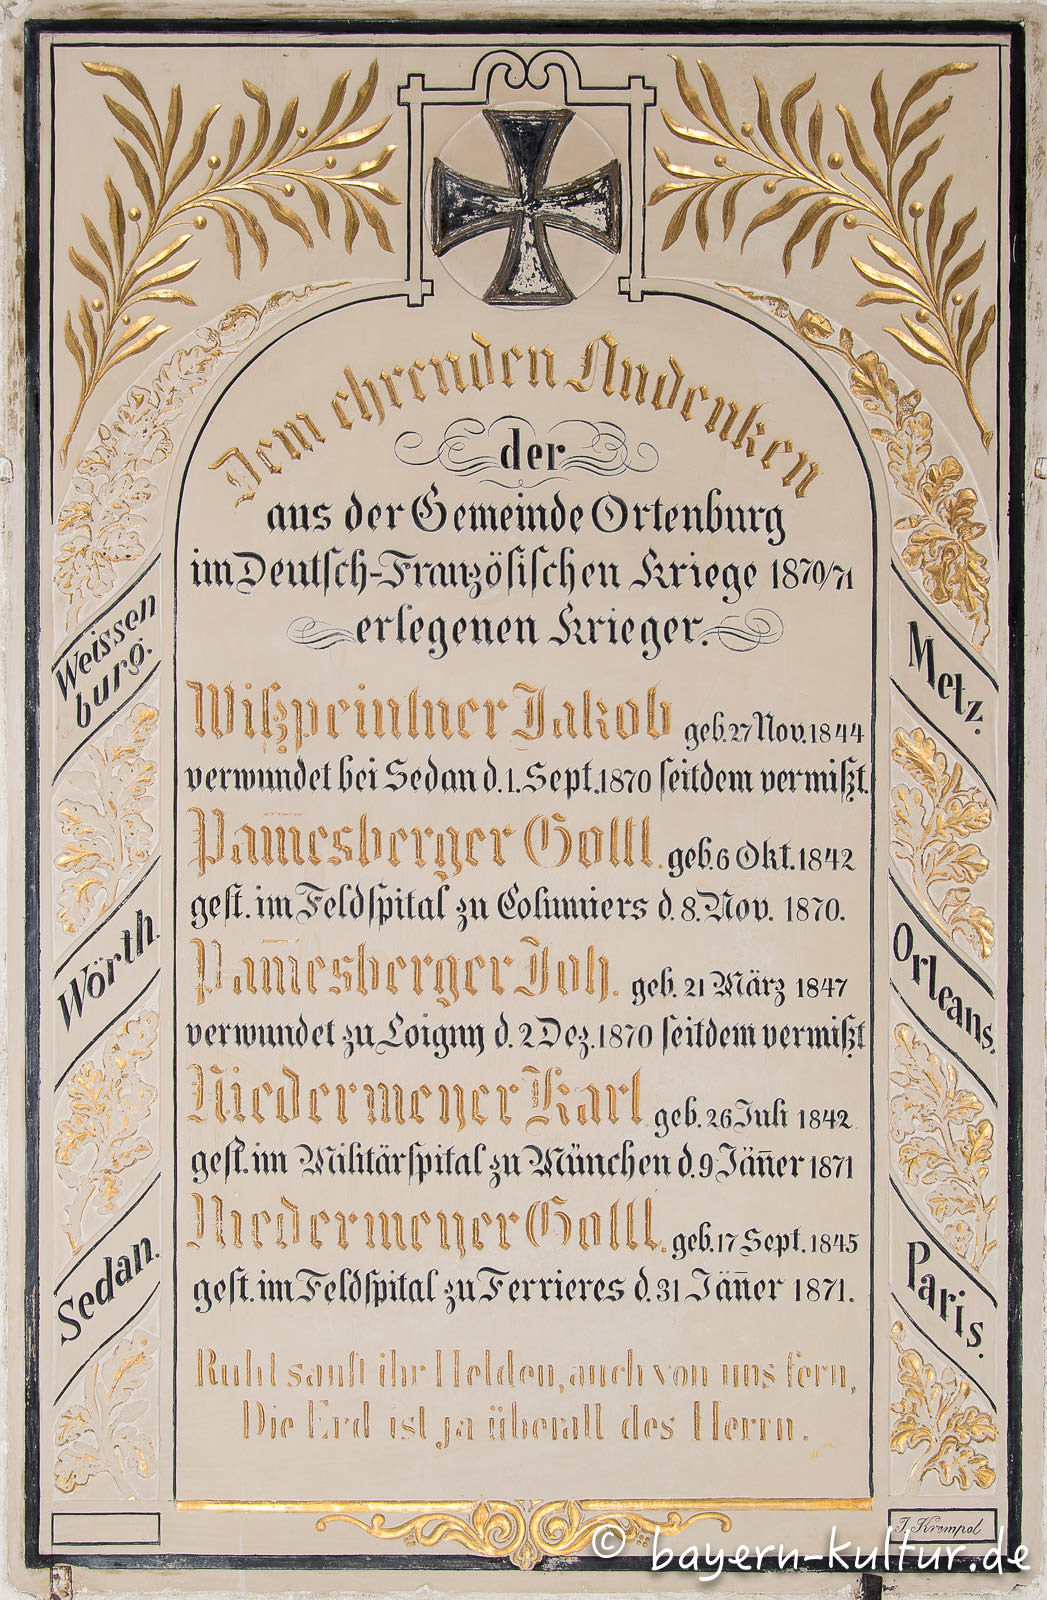 Dem ehrenden Andenken
der
aus der Gemeinde Ortenburg
im Deutſch-Franzöſiſchen Kriege 1870/71
erlegenen Krieger.
Wißpeintner Jakob geb. 27 Nov. 1844
verwundet bei Sedan d. 1. Sept. 1870 ſeitdem vermißt.
Pam̅esberger Gottl. geb. 6 Okt. 1842
geſt. im Feldſpital zu Columiers d. 8. Nov. 1870.
Pam̅esberger Joh. geb. 21 März 1847
verwundet zu Loigny d. 2 Dez. 1870 ſeitdem vermißt
Niedermeyer Karl geb. 26 Juli 1842
geſt. im Militärſpital zu München d. 9 Jän̅er 1871
Niedermeyer Gottl. geb. 17 Sept. 1845
geſt. im Feldſpital zu Ferrieres d. 31 Jän̅er 1871.
Ruht sanft ihr Helden, auch von uns fern,
Die Erd ist ja überall des Herrn.
Weissen
burg.
Wörth.
Sedan.
Metz.
Orleans.
Paris.
J. Krempol
© bayern-kultur.de